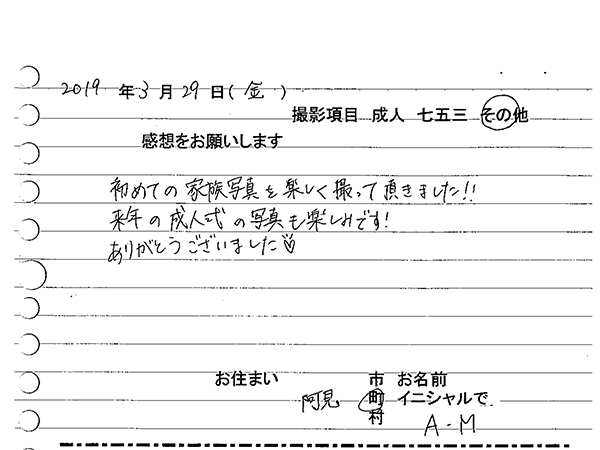 2019年3月29日(金)
撮影項目 成人 七五三 その他
感想をお願いします
初めての家族写真を楽しく撮って頂きました!!
来年の成人式の写真も楽しみです!
ありがとうございました♡
お住まい 市 お名前
阿見 町 イニシャルで
村 A.M